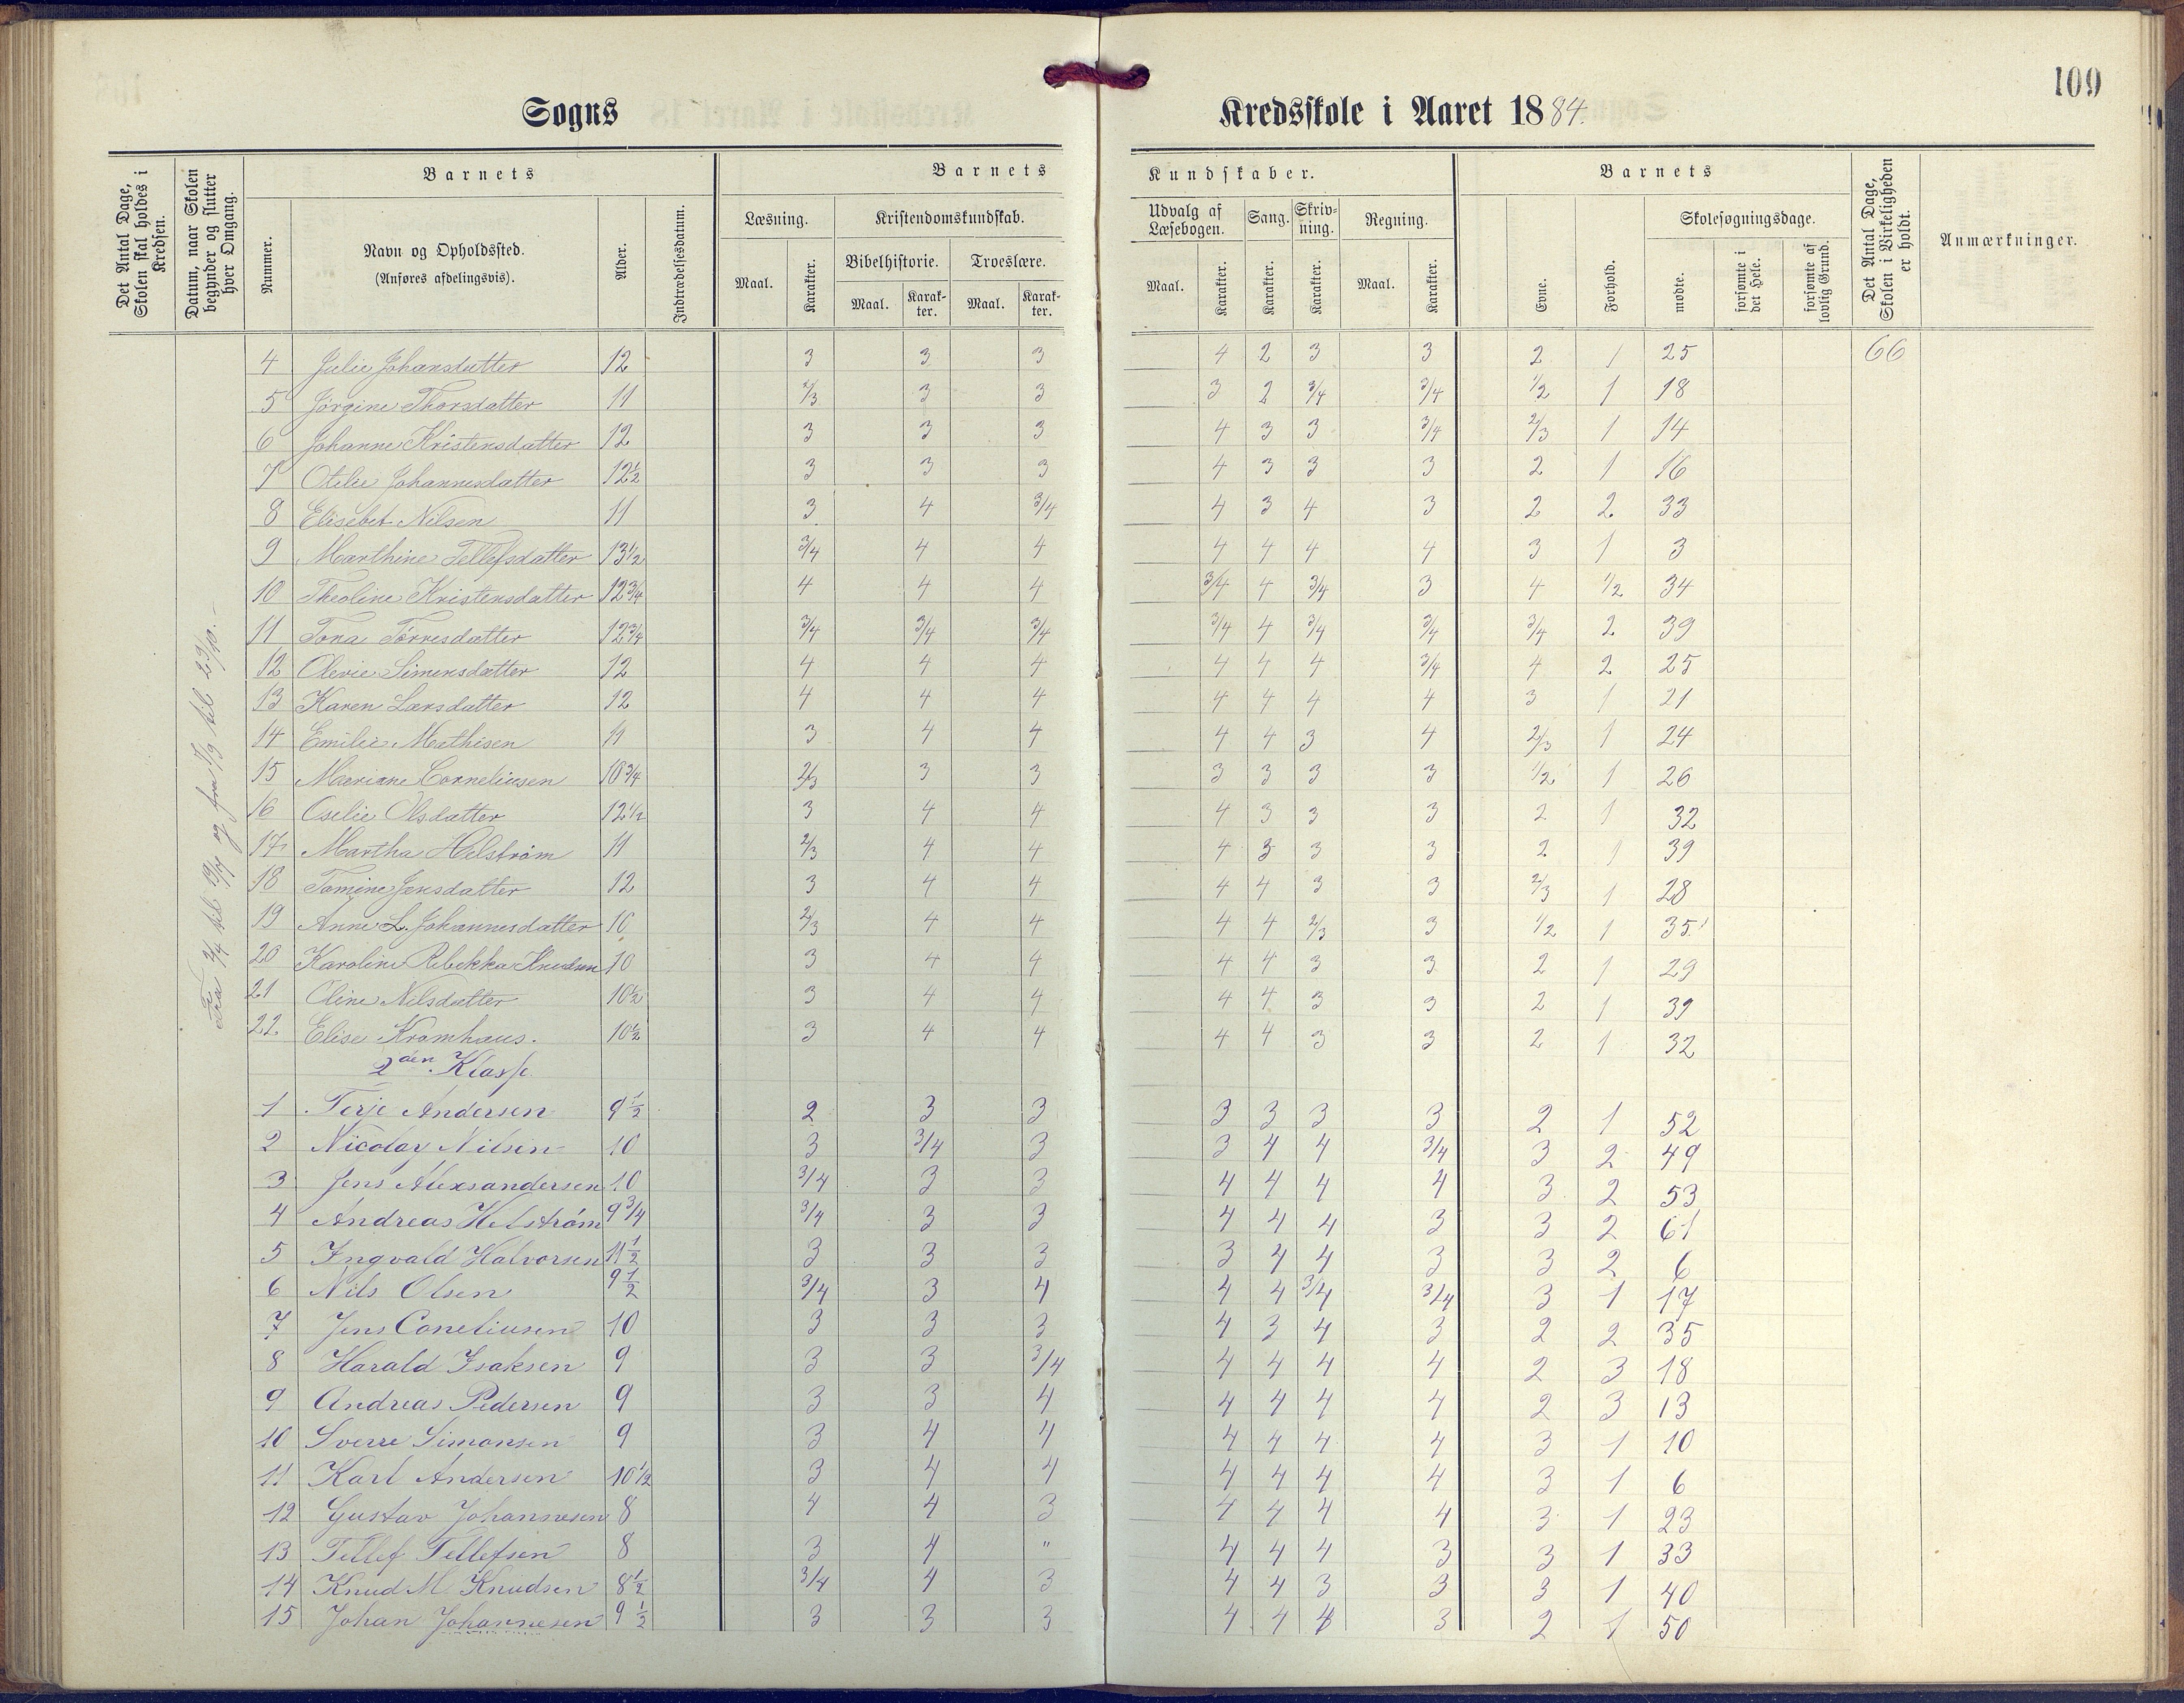 109
Sogns Kredsskole i Aaret 1884.
Det Antal Dage, Skolen skal holdes i Kredsen.
Datum, naar Skolen begynder og slutter hver Omgang.
Barnets
Nummer.
Navn og Opholdssted.
(Anføres afdelingsvis).
Alder.
Indtrædelsesdatum.
Barnets Kundskaber.
Læsning.
Maal. Karakter.
Kristendomskundskab.
Bibelhistorie. Troeslære.
Maal. Karakter. Maal. Karakter.
Udvalg af Læsebogen. Sang. Skrivning. Regning.
Maal. Karakter. Karakter. Karakter. Maal. Karakter.
Barnets
Evne. Forhold.
Skolesøgningsdage.
mødte. forsømte i det Hele. forsømte af lovlig Grund.
Det Antal Dage, Skolen i Virkeligheden er holdt.
Anmærkninger.
4 Julie Johansdatter 12 3 3 3 4 2 3 3 2 1 25 66
5 Jørgine Thorsdatter 11 2/3 3 3 3 2 3/4 3/4 1/2 1 18
6 Johanne Kristensdatter 12 3 3 3 4 3 3 3/4 2/3 1 14
7 Otilie Johannesdatter 12 1/2 3 3 3 4 3 3 3 2 1 16
8 Elisebet Nilsen 11 3 4 3/4 4 3 4 3 2 2 33
9 Marthine Tellefsdatter 13 1/2 3/4 4 4 4 4 4 4 3 1 3
10 Theoline Kristensdatter 12 3/4 4 4 4 3/4 4 3/4 3 4 1/2 34
11 Tona Tørresdatter 12 3/4 3/4 3/4 3/4 3/4 4 3/4 3/4 3/4 2 39
12 Olevie Simensdatter 12 4 4 4 4 4 4 3/4 4 2 25
13 Karen Larsdatter 12 4 4 4 4 4 4 4 3 1 21
14 Emilie Mathisen 11 3 4 4 4 4 3 4 2/3 1 24
15 Mariane Corneliusen 10 3/4 2/3 3 3 3 3 3 3 1/2 1 26
16 Oselie Olsdatter 12 1/2 3 4 4 4 3 3 3 2 1 32
17 Martha Helstrøm 11 2/3 4 4 4 3 3 3 2 1 39
18 Tomine Jensdatter 12 3 4 4 4 4 3 3 2/3 1 28
19 Anne L. Johannesdatter 10 2/3 4 4 4 4 2/3 3 1/2 1 35
20 Karoline Rebekka Knudsen 10 3 4 4 4 4 3 3 2 1 29
21 Oline Nilsdatter 10 1/2 3 4 4 4 4 3 3 2 1 39
22 Elise Kromhaus. 10 1/2 3 4 4 4 4 3 3 2 1 32
2den Klasse.
1 Terje Andersen 9 1/2 2 3 3 3 3 3 3 2 1 52
2 Nicolay Nilsen 10 3 3/4 3 3 4 4 3/4 3 2 49
3 Jens Alexsandersen 10 3/4 3 3 4 4 4 4 3 2 53
4 Andreas Helstrøm 9 3/4 3/4 3 3 4 4 4 3 3 2 61
5 Ingvald Halvorsen 11 1/2 3 3 3 3 4 4 3 3 2 6
6 Nils Olsen 9 1/2 3/4 3 4 4 4 3/4 3/4 3 1 17
7 Jens Coneliusen 10 3 3 3 4 3 4 3 2 2 35
8 Harald Isaksen 9 3 3 3/4 4 4 4 4 2 3 18
9 Andreas Pedersen 9 3 3 4 4 4 4 4 2 3 13
10 Sverre Simonsen 9 3 4 4 4 4 4 4 3 1 10
11 Karl Andersen 10 1/2 3 4 4 4 4 4 4 3 1 6
12 Gustav Johannesen 8 4 4 3 4 4 4 4 3 1 23
13 Tellef Tellefsen 8 3 4 " 4 4 4 3 3 1 33
14 Knud M. Knudsen 8 1/2 3/4 4 3 4 4 3 3 3 1 40
15 Johan Johannesen 9 1/2 3 3 3 4 4 4 3 2 1 50